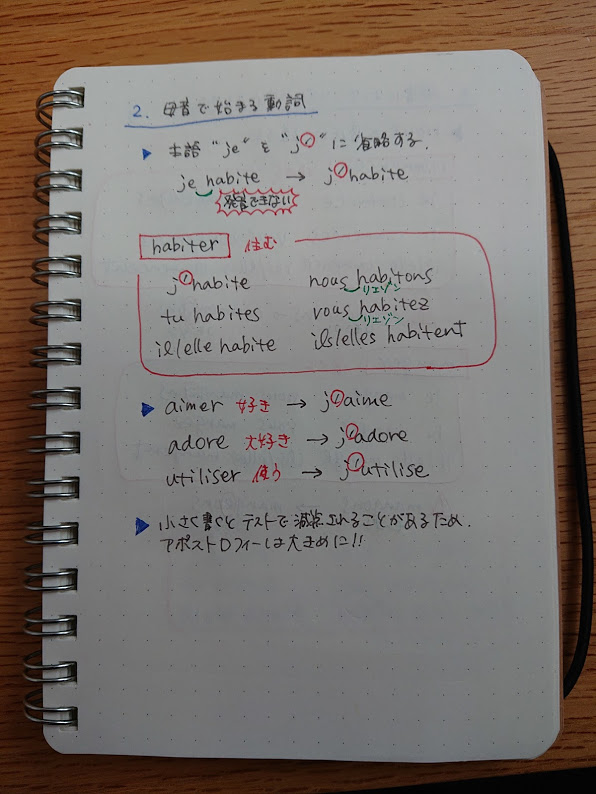 2. 母音で始まる動詞
▶ 主語 "je" を "j'" に省略する.
je habite → j'habite
発音できない
habiter 住む
j'habite nous habitons
リエゾン
tu habites vous habitez
リエゾン
il/elle habite ils/elles habitent
▶ aimer 好き → j'aime
adore 大好き → j'adore
utiliser 使う → j'utilise
▶ 小さく書くとテストで減点されることがあるため.
アポストロフィーは大きめに!!